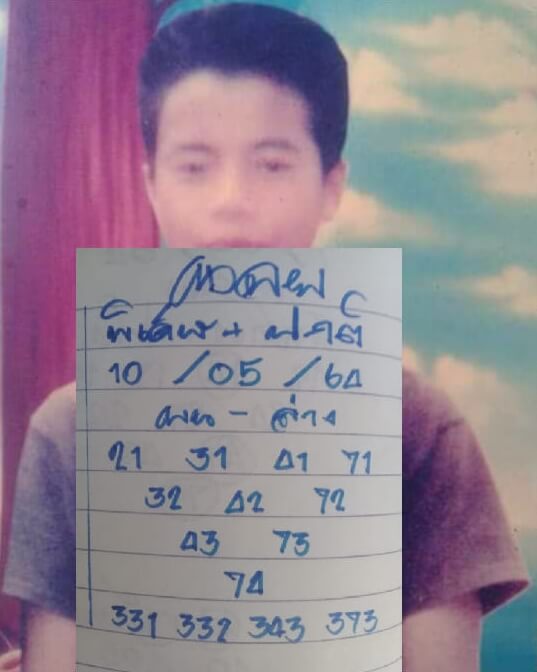 ฮานอย
พิเศษ + ปกติ
10 / 05 / 64
บน - ล่าง
21 31 41 71
32 42 72
43 73
74
331 332 343 373